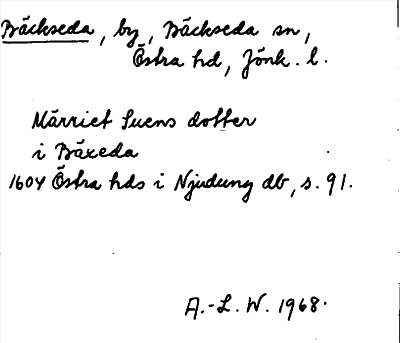 Bäckseda, by, Bäckseda sn,
Östra hd, Jönk. l.
Märriet Suens dotter
i Bäxeda
1604 Östra hds i Njudung db, s. 91.
A.-L. W. 1968.